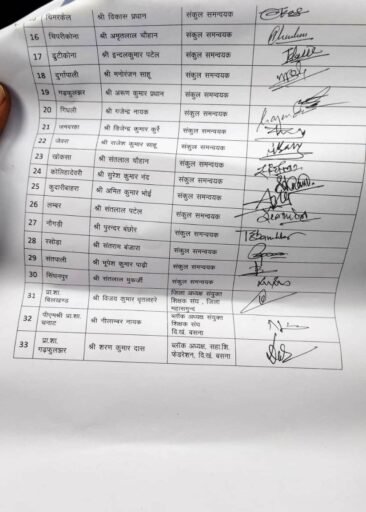 चिमरकेल श्री विकास प्रधान संकुल समन्वयक
16 चिपरीकोना श्री अमृतलाल चौहान संकुल समन्वयक
17 दुटीकोना श्री इन्दलकुमार पटेल संकुल समन्वयक
18 दुर्गापाली श्री मनोरंजन साहू संकुल समन्वयक
19 गढ़फुलझर श्री अरूण कुमार प्रधान संकुल समन्वयक
20 श्री गजेन्द्र नायक संकुल समन्वयक
21 श्री डिजेन्द्र कुमार कुर्रे संकुल समन्वयक
22 जेवरा श्री राजेश कुमार साहू संकुल समन्वयक
23 खोकसा श्री संतलाल चौहान संकुल समन्वयक
24 कोलिहादेवरी श्री सुरेश कुमार नंद संकुल समन्वयक
25 कुदारीबाहरा श्री अमित कुमार भोई संकुल समन्वयक
26 लम्बर श्री संतलाल पटेल संकुल समन्वयक
27 नौगड़ी श्री पुरन्दर बंछोर संकुल समन्वयक
28 रसोड़ा श्री संतराम बंजारा संकुल समन्वयक
29 संतपाली श्री भूपेश कुमार पाढ़ी संकुल समन्वयक
30 सिंघनपुर श्री संतलाल मुकर्जी संकुल समन्वयक
31 प्रा.शा. बिलखण्ड श्री विजय कुमार धृतलहरे जिला अध्यक्ष संयुक्त
शिक्षक संघ , जिला
महासमुन्द
32 पीएमश्री प्रा.शा. श्री नीलाम्बर नायक ब्लॉक अध्यक्ष संयुक्त
शिक्षक संघ
वि.खं. बसना
33 प्रा.शा. गढ़फुलझर श्री शरण कुमार दास ब्लॉक अध्यक्ष, सहा.शि.
फेडरेशन, वि.खं. बसना